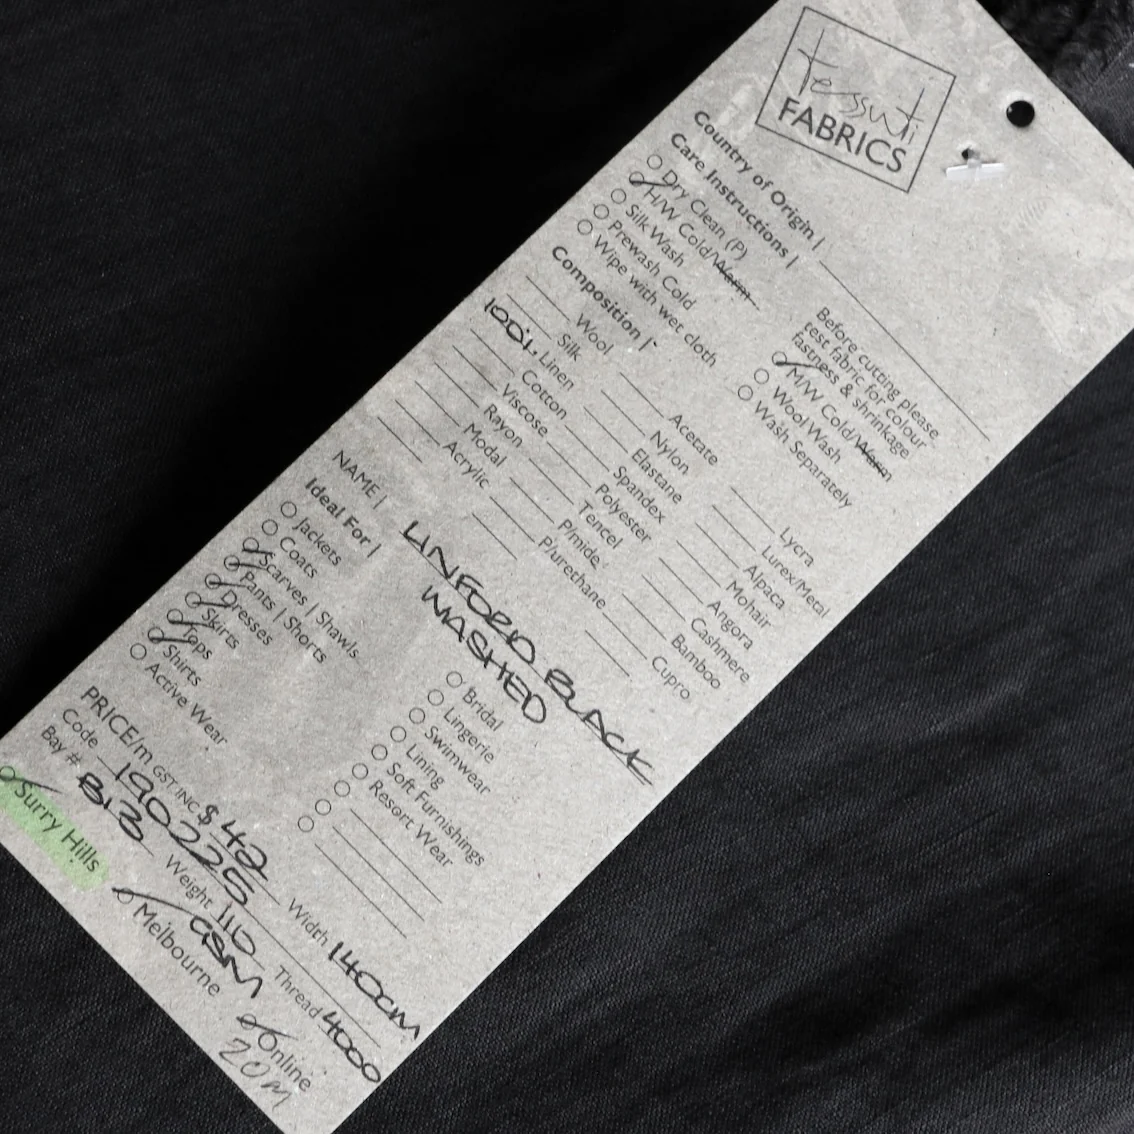 tessuti
FABRICS
Country of Origin |
Care Instructions |
Dry Clean (P)
H/W Cold/Warm
Silk Wash
Prewash Cold
Wipe with wet cloth
Before cutting please
test fabric for colour
fastness & shrinkage
M/W Cold/Warm
Wool Wash
Wash Separately
Composition |
Wool
Silk
100% Linen
Cotton
Viscose
Rayon
Modal
Acrylic
Acetate
Nylon
Elastane
Spandex
Polyester
Tencel
P/mide
P/urethane
Lycra
Lurex/Metal
Alpaca
Mohair
Angora
Cashmere
Bamboo
Cupro
NAME | LINFORD BLACK
WASHED
Ideal For |
Jackets
Coats
Scarves | Shawls
Pants | Shorts
Dresses
Skirts
Tops
Shirts
Active Wear
Bridal
Lingerie
Swimwear
Lining
Soft Furnishings
Resort Wear
PRICE/m GST INC $42 Width 140CM
Code 190225
Bay # B13 Weight 116 GSM Thread 4000
Surry Hills Melbourne Online
20M